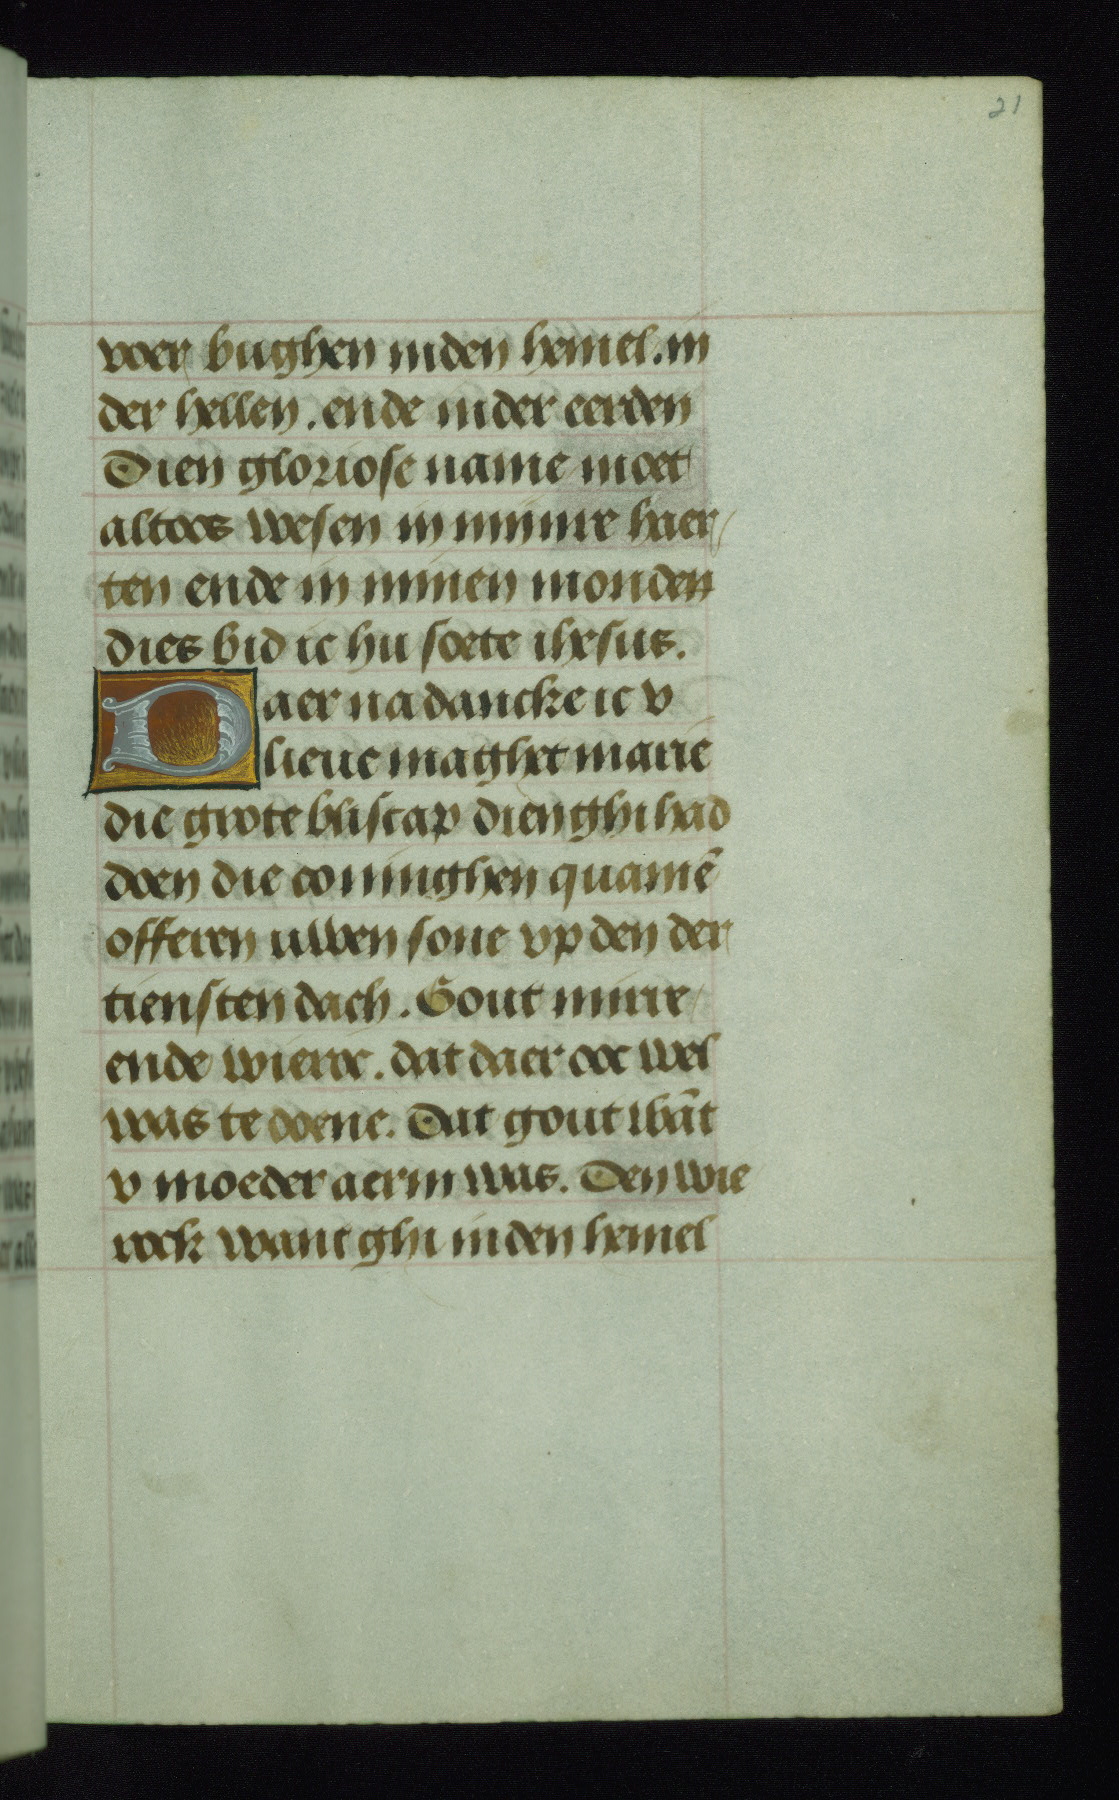 21
voer bughen inden hemel. in
der hellen. ende inder eerden
Dien gloriose name moet
altoos wesen in minre haer/
ten ende in minen monden
dies bid ic hu soete ihesus.
Daer na dancke ic v
lieue maghet marie
die grote bliscap dien ghi had
doen die coninghen quamē
offeren uwen sone vp den der
tiensten dach. Gout mirre
ende wieroc. dat daer ooc wel
was te doene. Dat gout wāt
v moeder aerm was. Den wie
rock want ghi inden hemel